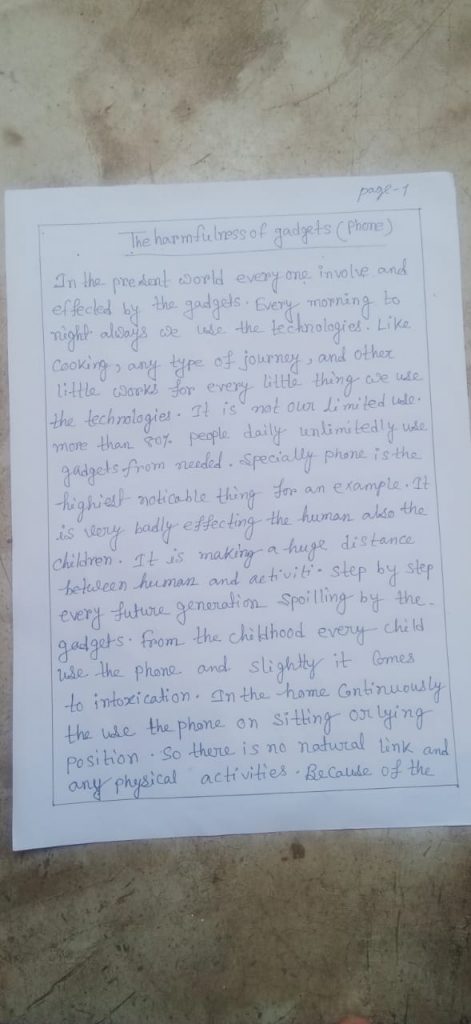 page-1
The harmfulness of gadgets (phone)
In the predent world every one involve and
effected by the gadgets. Every morning to
night always we use the technologies. Like
Cooking, any type of journey, and other
little works for every little thing we use
the technologies. It is not our limited use.
more than 80% people daily unlimitedly use
gadgets from needed. specially phone is the
highiest noticable thing for an example. It
is very badly effecting the human also the
children. It is making a huge distance
between human and activiti. Step by step
every future generation spoilling by the
gadgets. from the childhood every child
use the phone and slightly it comes
to intoxication. In the home Continuously
the use the phone on sitting or lying
position. So there is no natural link and
any physical activities. Because of the